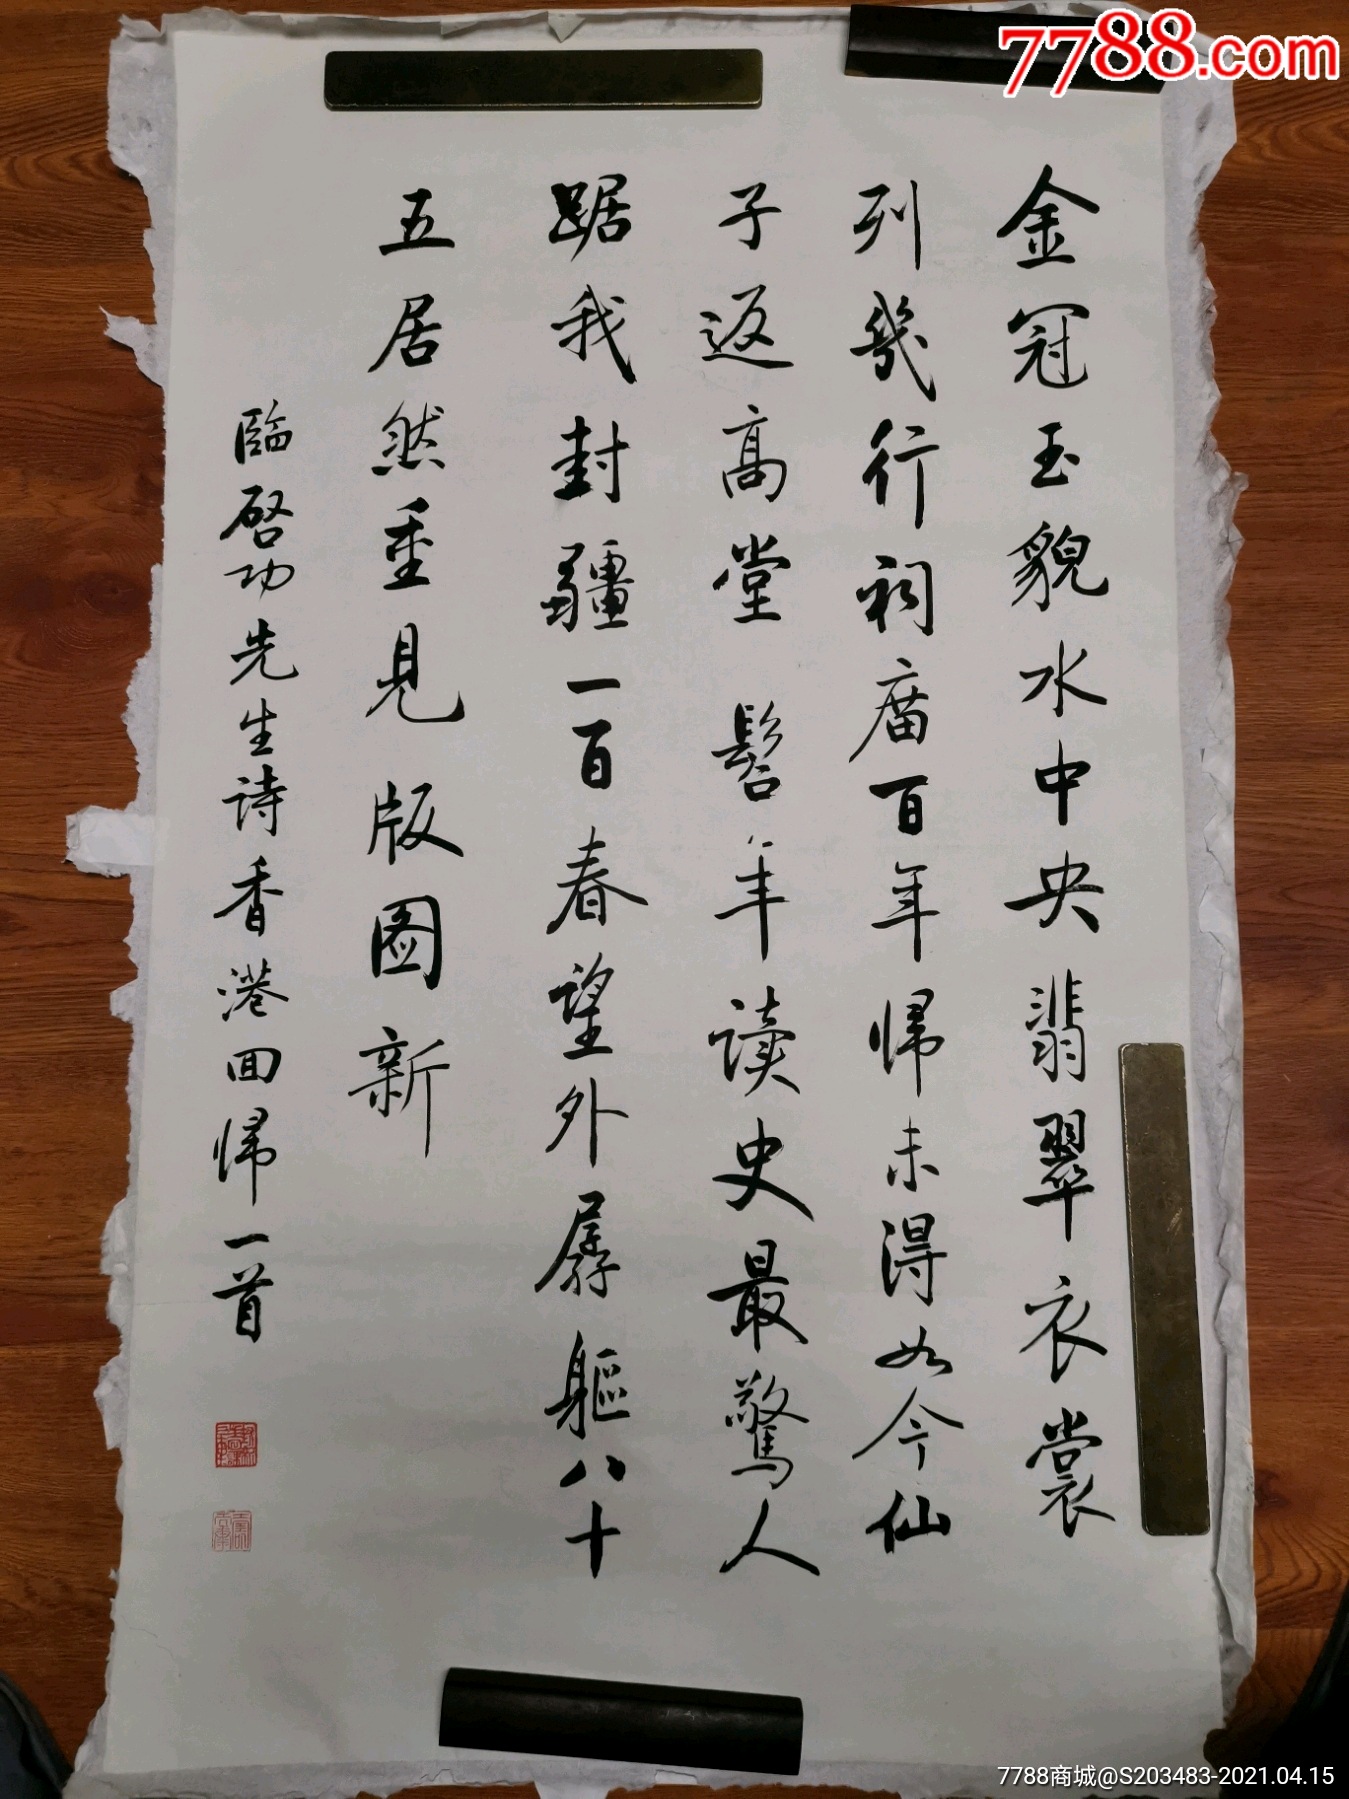 金冠玉貌水中央翡翠衣裳
列幾行祠庿百年帰未得如今仙
子返高堂 髫年讀史最驚人
踞我封疆一百春望外孱軀八十
五居然重見 版圖新
臨啓功先生詩香港回帰一首
7788.com
7788商城@S203483-2021.04.15